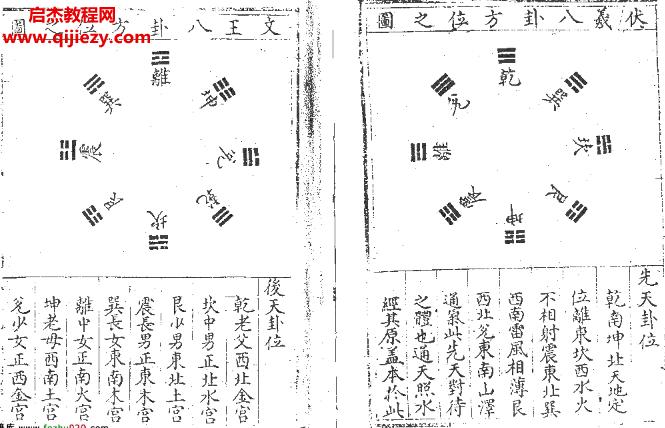 伏羲八卦方位之圖
乾
兌
巽
離
坎
震
艮
坤
先天卦位
乾南坤北天地定
位離東坎西水火
不相射震東北巽
西南雷風相薄艮
西北兌東南山澤
通案此先天對待
之體也通天照水
經其原蓋本於此
启杰教程网
www.qijiezy.com
文王八卦方位之圖
離
巽
坤
震
兌
艮
乾
坎
後天卦位
乾老父西北金宮
坎中男正北水宮
艮少男東北土宮
震長男正東木宮
巽長女東南木宮
離中女正南火宮
坤老母西南土宮
兌少女正西金宮